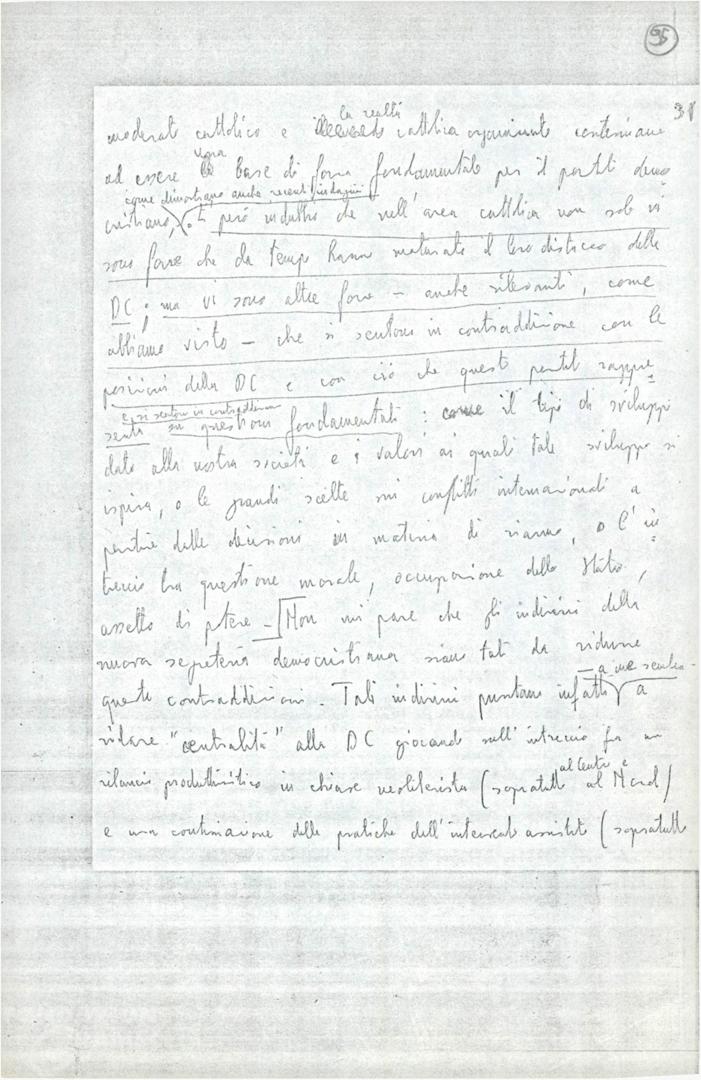 95
38
la realtà
moderato cattolico e cattolica organizzata continuano
una
ad essere base di forza fondamentale per il partito demo
come dimostrano anche recenti indagini
cristiano. È però indubbio che nell'area cattolica non solo vi
sono forze che da tempo hanno maturato il loro distacco dalla
DC; ma vi sono altre forze – anche rilevanti, come
abbiamo visto – che si sentono in contraddizione con le
posizioni della DC e con ciò che questo partito rappre
e si sentono in contraddizione
senta su questioni fondamentali: come il tipo di sviluppo
dato alla nostra società e i valori ai quali tale sviluppo si
ispira, o le grandi scelte sui conflitti internazionali a
partire dalle decisioni in materia di riarmo, o l'in
treccio tra questione morale, occupazione dello Stato,
assetto di potere – Non mi pare che gli indirizzi della
nuova segreteria democristiana siano tali da ridurre
– a me sembra –
queste contraddizioni. Tali indirizzi puntano infatti a
ridare "centralità" alla DC giocando sull'intreccio fra un
al Centro e
rilancio produttivistico in chiave neoliberista (sopratutto al Nord)
e una continuazione delle pratiche dell'intervento assistito (sopratutto